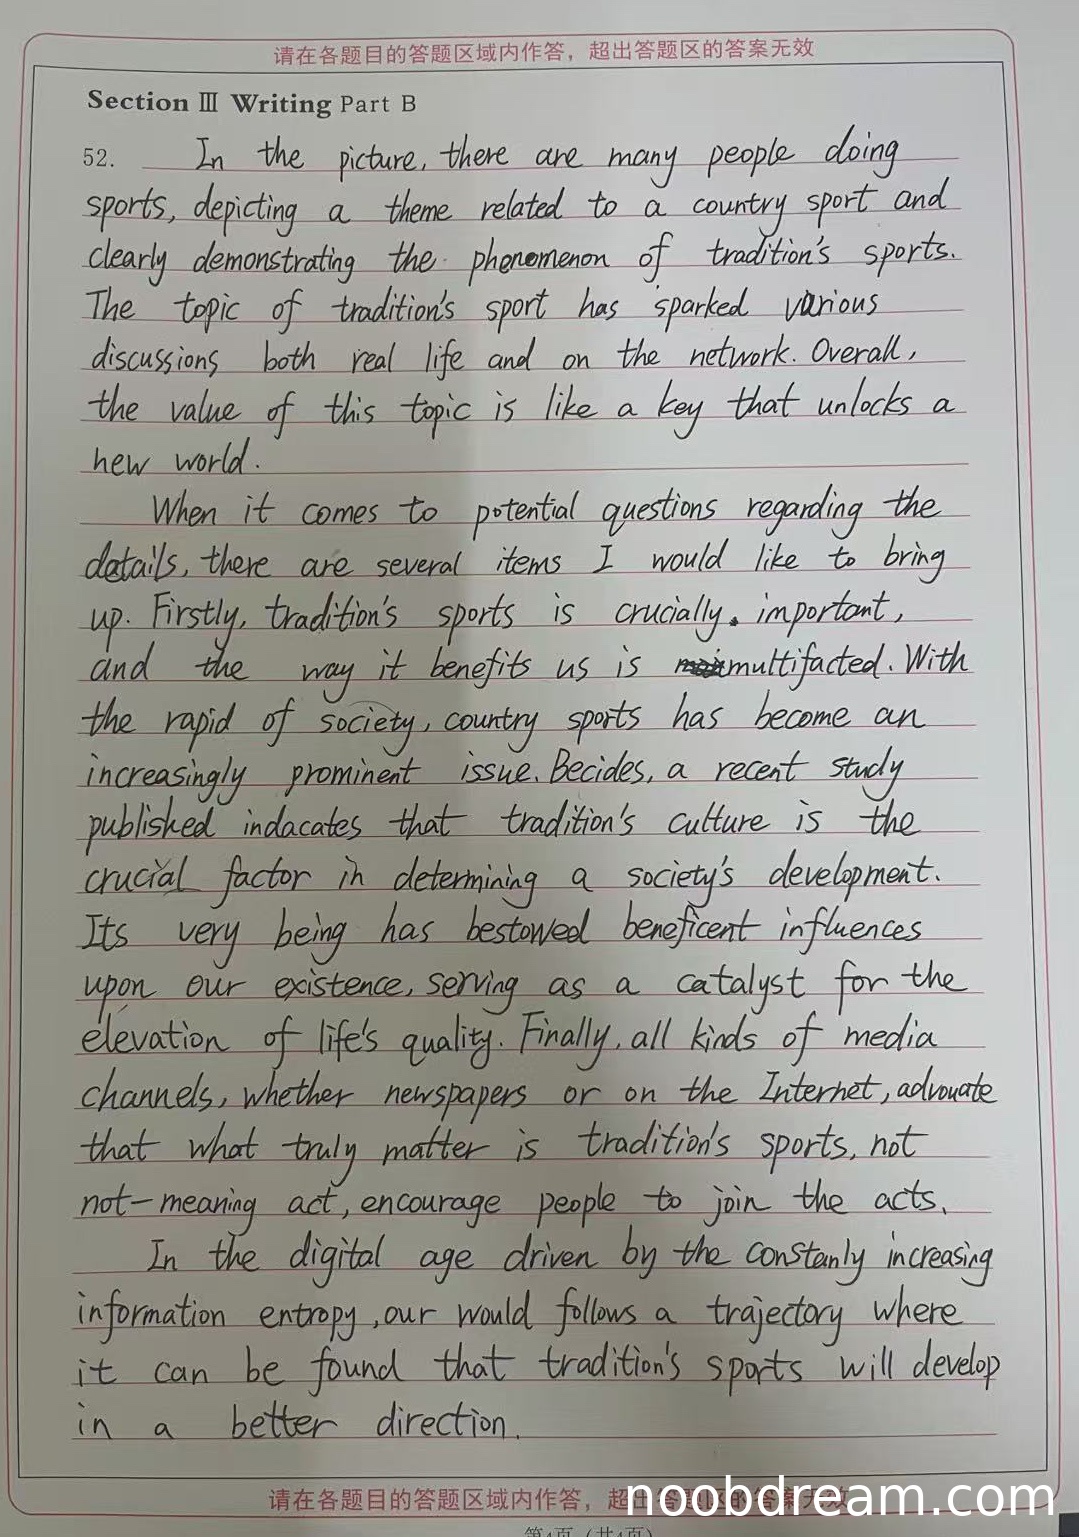 请在各题目的答题区域内作答，超出答题区的答案无效
Section Ⅲ Writing Part B
52. In the picture, there are many people doing
sports, depicting a theme related to a country sport and
clearly demonstrating the phenomenon of tradition's sports.
The topic of tradition's sport has sparked various
discussions both real life and on the network. Overall,
the value of this topic is like a key that unlocks a
new world.
When it comes to potential questions regarding the
details, there are several items I would like to bring
up. Firstly, tradition's sports is crucially important,
and the way it benefits us is multifacted. With
the rapid of society, country sports has become an
increasingly prominent issue. Becides, a recent study
published indacates that tradition's culture is the
crucial factor in determining a society's development.
Its very being has bestowed beneficent influences
upon our existence, serving as a catalyst for the
elevation of life's quality. Finally, all kinds of media
channels, whether newspapers or on the Internet, advouate
that what truly matter is tradition's sports, not
not-meaning act, encourage people to join the acts.
In the digital age driven by the constanly increasing
information entropy, our would follows a trajectory where
it can be found that tradition's sports will develop
in a better direction.
请在各题目的答题区域内作答，超出答题区的答案无效
noobdream.com
第4页（共4页）